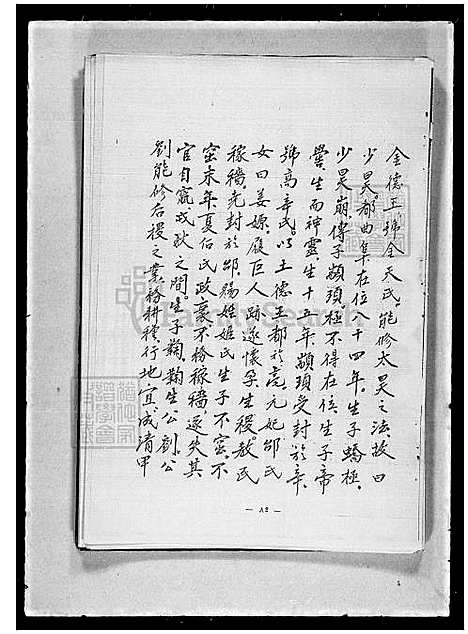 金德王號金天氏能修太昊之法故曰
少昊都曲阜在位八十四年。生子蟜極、
少昊崩傳子顓頊。極不得在位。生子帝
嚳、生而神靈生十五年、顓頊受封於辛、
號高辛氏。以土德王都於亳。元妃邰氏
女曰姜嫄、履巨人跡遂懷孕。生稷。教民
稼穡。堯封於邰。賜姓姬氏生子不窋。不
窋末年。夏后氏政衰不務稼穡、遂失其
官自竄戎狄之間。生子鞠、鞠生公劉、公
劉能修后稷之業務耕種行地宜、成清甲
FamilySearch